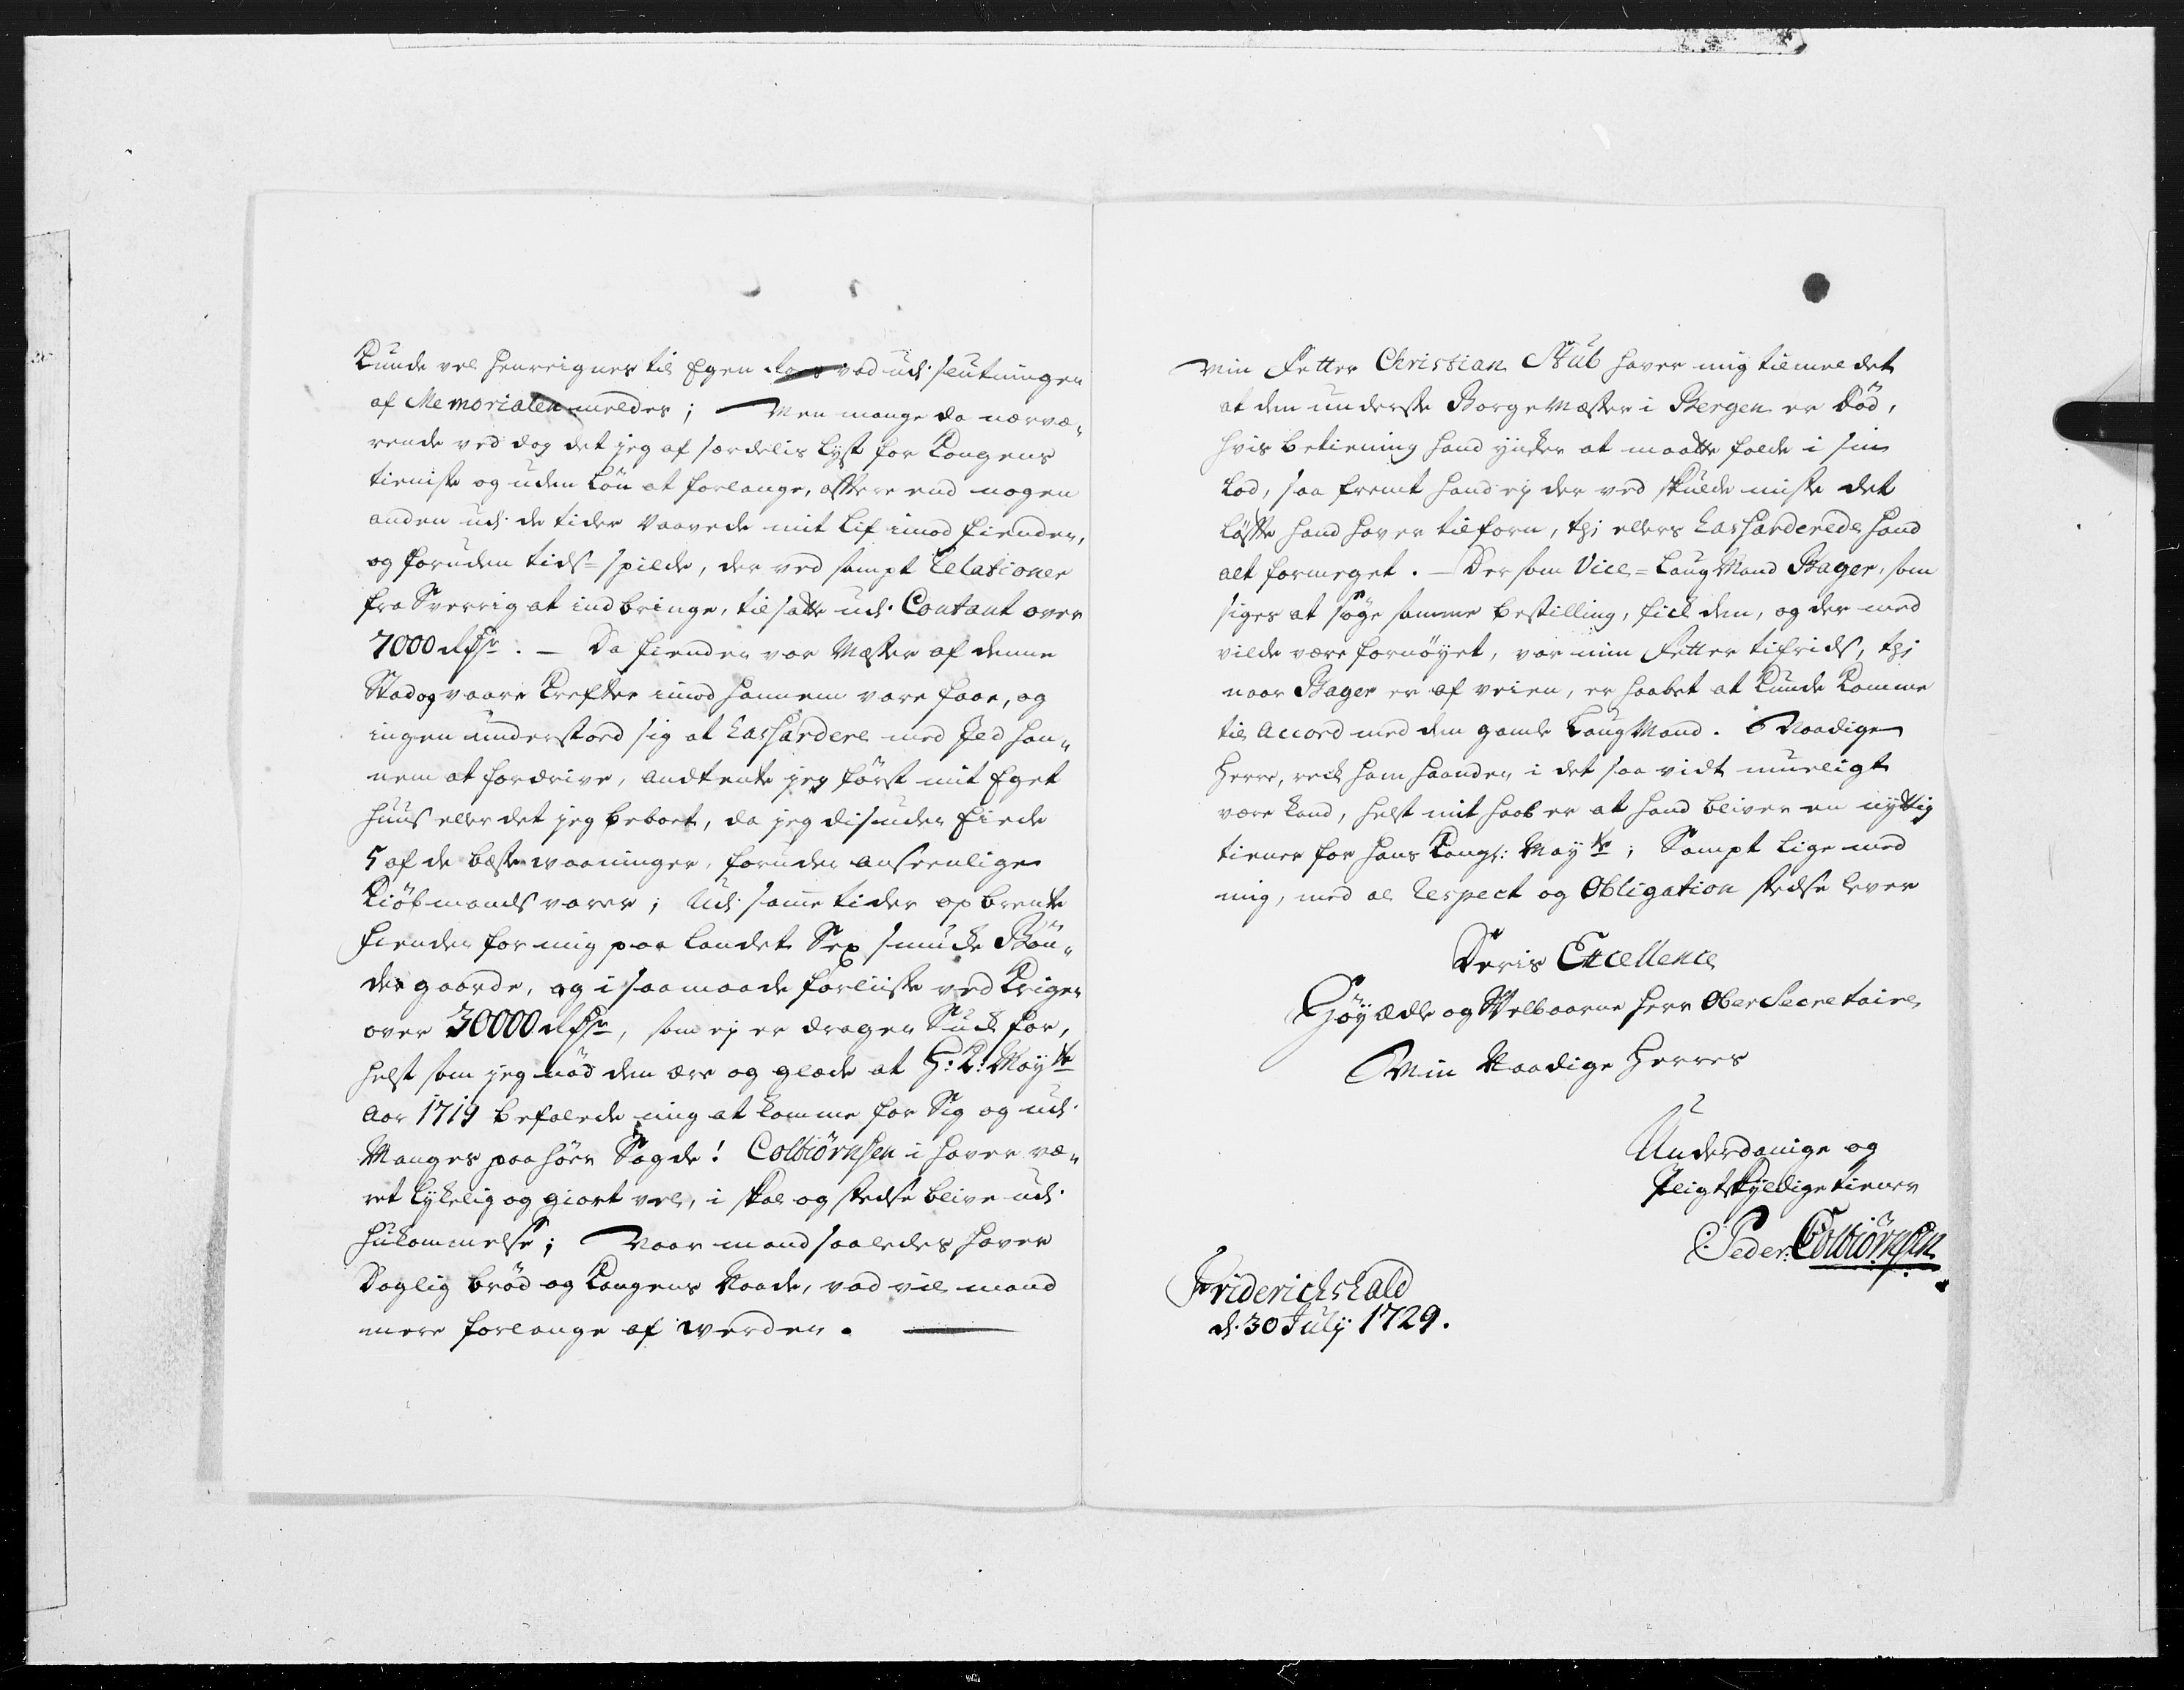 Kunde vel henreignes til Egen Roes vad udj slutningen
af Memorialen meldes; Men mange da nærvæ„
rende ved dog det jeg af særdelis lyst for Kongens
tieniste og uden Løn at forlange, oftere end nogen
anden udj de tider vaavede mit lif imod fienden,
og foruden tids-spilde, der ved sampt Relationer
fra Sverrig at indbringe, tilsatte udj Contant over
7000 Rdr. — Da fienden var Mæster af denne
Stad og vaare Krefter imod hannem vare faae, og
ingen understoed sig at hashardere med Ild han„
nem at fordrive, andtente jeg först mit Eget
huus eller det jeg beboet, da jeg disuden Eiede
5 af de bæste waaninger, foruden anseenlige
Kiöbmands varer; Udj samme tider opbrente
fienden for mig paa landet Sex smucke Bön„
der gaarde, og i saa maade forliiste ved Krigen
over 30000 Rdr, som ej er dragen Suck for,
helst som jeg nöd den ære og glæde at H: K: Mayts
Aar 1719 befalede mig at komme for Sig og udj
Manges paahörn Sagde! Colbiörnsen i haver væ„
ret lykelig og giort vel, i skal og stedse blive udj
hukommelse; Naar mand saaledes haver
Daglig bröd og Kongens Naade, vad vil mand
mere forlange af werden.
Min Fetter Christian Stub haver mig tilmeldet
at den underste Borgemæster i Bergen er död,
hvis betiening hand ynsker at maatte falde i sin
Lod, saa fremt hand ej der ved skulde miste det
löfte hand haver tilforn, thj ellers hasharderede hand
alt formeget. — Der som Vice-LaugMand Bager, som
siges at söge samme bestilling, fick den, og der med
vilde være fornöyet, var min Fetter tilfrids, thj
naar Bager er af veien, er haabet at Kunde komme
til Accord med den gamle LaugMand. Naadige
Herre, reck ham haanden i det saa vidt mueligt
være kand, helst mit haab er at hand bliver en nyttig
tiener for hans Kongl: Mayts; Sampt lige med
mig, med al Respect og Obligation stedse lever
Deris Excellence
Höyædle og Welbaarne Herr OberSecretaire
Min Naadige Herres
Underdanige og
Pligtskyldige tiener
Peder Colbiörnsen
Friderichshald
d. 30 July 1729.